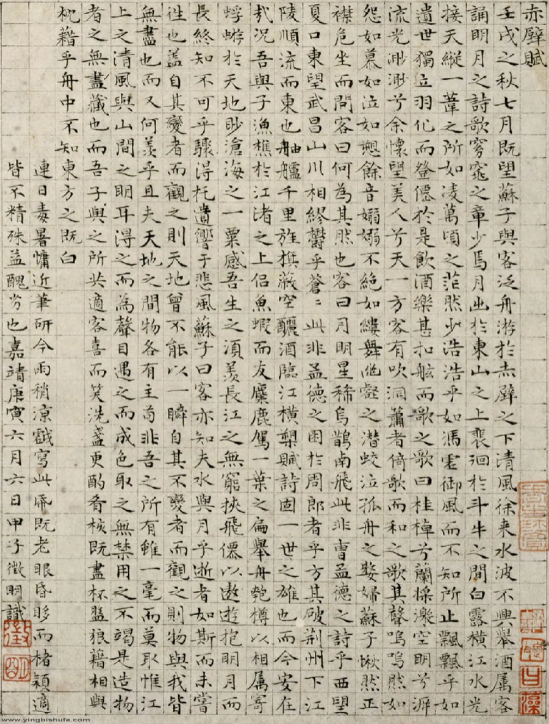 赤壁賦
壬戌之秋七月既望蘇子與客泛舟游於赤壁之下清風徐来水波不興舉酒屬客
誦明月之詩歌窈窕之章少焉月出於東山之上裵徊於斗牛之間白露横江水光
接天縱一葦之所如凌萬頃之茫然少浩浩乎如馮虚御風而不知所止飄飄乎如
遺世獨立羽化而登僊於是飲酒樂甚扣舷而歌之歌曰桂棹兮蘭槳激空明兮泝
流光渺渺兮余懷望美人兮天一方客有吹洞簫者倚歌而和之歌其聲嗚嗚然如
怨如慕如泣如訴餘音嫋嫋不絶如縷舞幽壑之潛蛟泣孤舟之嫠婦蘇子愀然正
襟危坐而問客曰何為其然也客曰月明星稀烏鵲南飛此非曹孟德之詩乎西望
夏口東望武昌山川相繆鬱乎蒼〻此非孟德之困於周郎者乎方其破荆州下江
陵順流而東也舳艫千里旌旗蔽空釃酒臨江横槊賦詩固一世之雄也而今安在
哉况吾與子漁樵於江渚之上侣魚蝦而友麋鹿駕一葉之扁舟舉匏樽以相屬寄
蜉蝣於天地眇滄海之一粟感吾生之須羨長江之無窮挾飛僊以遨遊抱明月而
長終知不可乎驟得托遺響于悲風蘇子曰客亦知夫水與月乎逝者如斯而未嘗
往也盖自其變者而觀之則天地曾不能以一瞬自其不變者而觀之則物與我皆
無盡也而又何羨乎且夫天地之間物各有主苟非吾之所有雖一毫而莫取惟江
上之清風與山間之明耳得之而為聲目遇之而成色取之無禁用之不竭是造物
者之無盡藏也而吾子與之所共適客喜而笑洗盞更酌肴核既盡杯盤狼籍相與
枕籍乎舟中不知東方之既白
連日毒暑慵近筆研今雨稍涼戲寫此冊既老眼昏眵而楮穎適
皆不精殊益醜劣也嘉靖庚寅六月六日甲子徵明識
徵明
www.yingbishufa.com